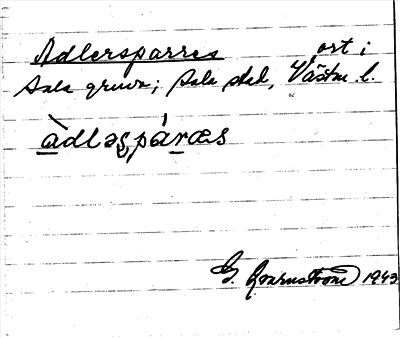 Adlersparres ort i
Sala gruva; Sala stad, Västm. l.
àdləʂpáræs
G. 1943